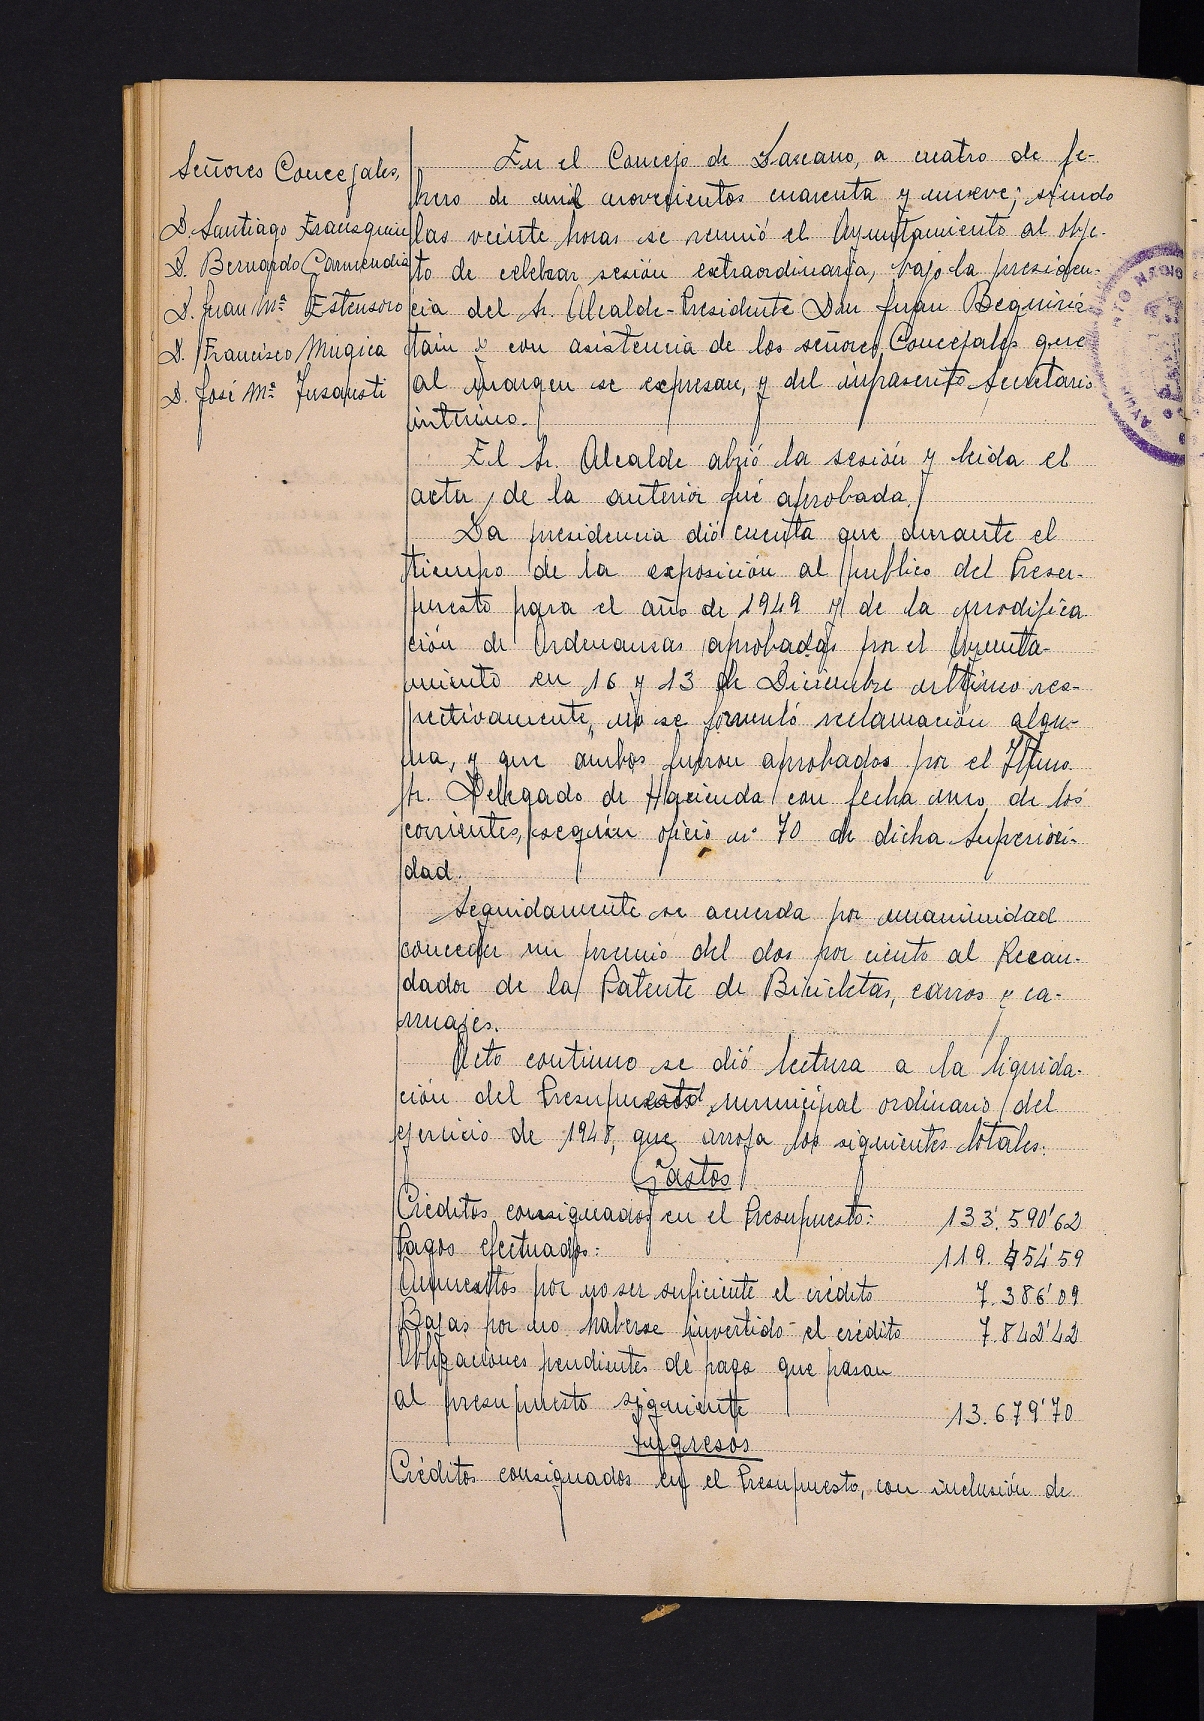 Señores Concejales,
D. Santiago Irausquin
D. Bernardo Garmendia
D. Juan Mª Estensoro
D. Francisco Mugica
D. José Mª Insausti
En el Concejo de Lazcano, a cuatro de fe-
brero de mil novecientos cuarenta y nueve; siendo
las veinte horas se reunió el Ayuntamiento al obje-
to de celebrar sesión extraordinaria, bajo la presiden-
cia del Sr. Alcalde-Presidente Don Juan Beguiris-
tain y con asistencia de los señores Concejales que
al margen se expresan, y del infrascrito Secretario
interino.
El Sr. Alcalde abrió la sesión y leida el
acta de la anterior fué aprobada.
La presidencia dió cuenta que durante el
tiempo de la exposición al publico del Presu-
puesto para el año de 1949 y de la modifica
ción de Ordenanzas aprobadas por el Ayunta-
miento en 16 y 13 de Diciembre ultimo res-
pectivamente, no se formuló reclamación algu-
na, y que ambos fueron aprobados por el Iltmo.
Sr. Delegado de Hacienda con fecha uno de los
corrientes, según oficio nº 70 de dicha Superiori-
dad.
Seguidamente se acuerda por unanimidad
conceder un premio del dos por ciento al Recau-
dador de la Patente de Bicicletas, carros y ca-
rruajes.
Acto continuo se dió lectura a la liquida-
ción del Presupuesto municipal ordinario del
ejercicio de 1948, que arroja los siguientes totales:
Gastos
Créditos consignados en el Presupuesto: 133.590'62
Pagos efectuados: 119.454'59
Aumentos por no ser suficiente el crédito 7.386'09
Bajas por no haberse invertido el crédito 7.842'42
Obligaciones pendientes de pago que pasan
al presupuesto siguiente 13.679'70
Ingresos
Créditos consignados en el Presupuesto, con inclusión de